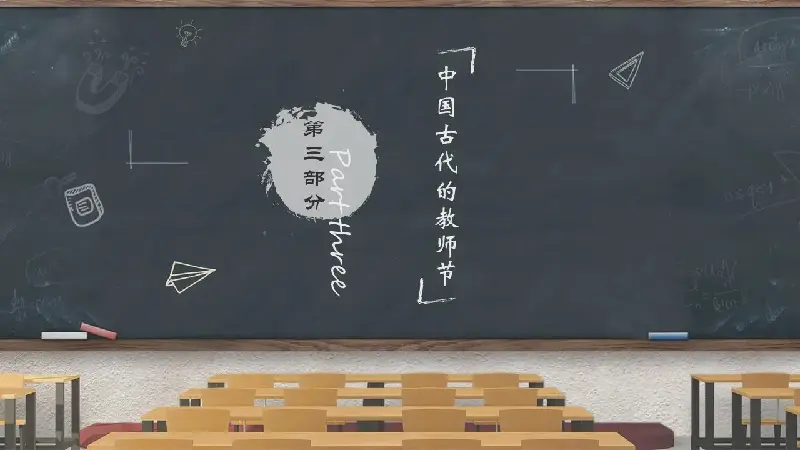 中国古代的教师节
第三部分
Part three